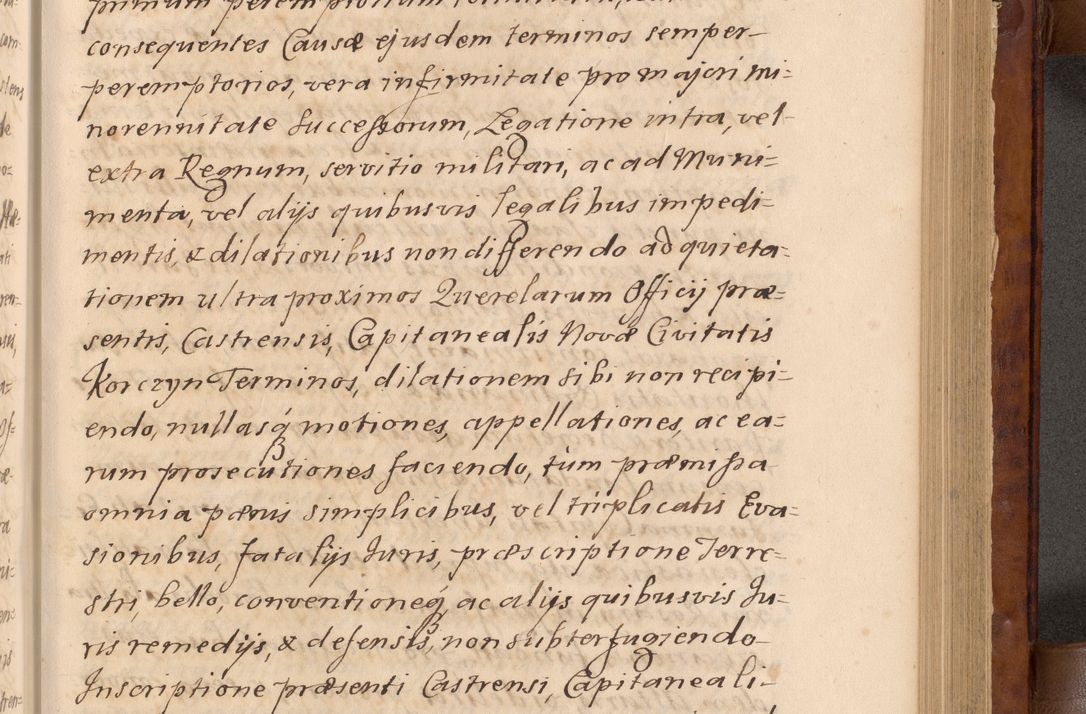 consequentes Causæ ejusdem terminos semper-
peremptorios, vera infirmitate pro majori mi=
norennitate Successorum, Legatione intra, vel-
extra Regnum, servitio militari, ac ad Muni=
menta, vel alijs quibusvis legalibus impedi=
mentis, & dilationibus non differendo ad quieta=
tionem ultra proximos Querelarum Officij præ=
sentis, Castrensis, Capitanealis Novæ Civitatis
Korczyn Terminos, dilationem sibi non recipi=
endo, nullasq́ motiones, appellationes, ac ea=
rum prosecutiones faciendo, tùm præmissa
omnia pœnis simplicibus, vel triplicatis Eva=
sionibus, fatalijs Juris, præscriptione Terre=
stri, bello, conventioneq́ ac alijs quibusvis Ju=
ris remedijs, & defensis, non subterfugiendo-
Inscriptione præsenti Castrensi, Capitaneali-